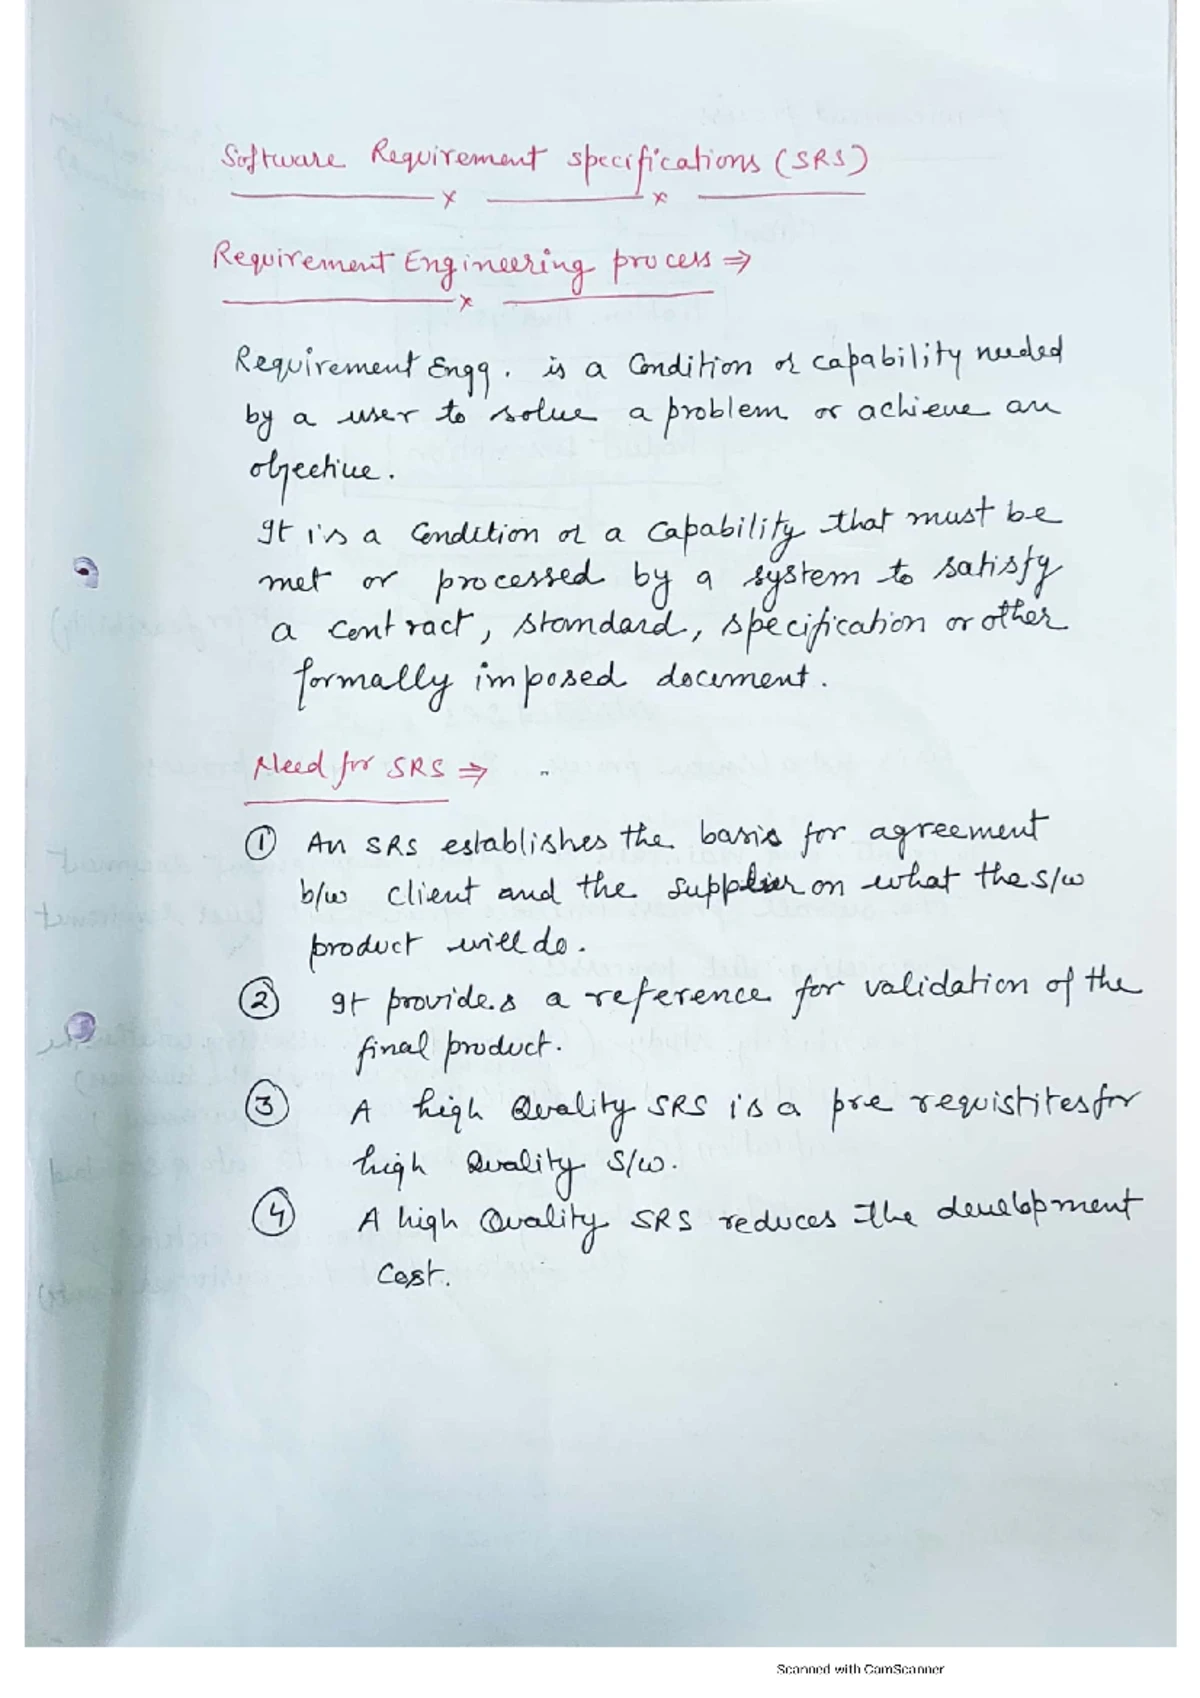 Software Requirement specifications (SRS)
Requirement Engineering process ⇒
Requirement Engg. is a Condition or capability needed
by a user to solve a problem or achieve an
objective.
It is a Condition or a capability that must be
met or processed by a system to satisfy
a contract, standard, specification or other
formally imposed document.
Need for SRS ⇒
① An SRS establishes the basis for agreement
b/w client and the supplier on what the s/w
product will do.
② It provides a reference for validation of the
final product.
③ A high Quality SRS is a pre requistites for
high Quality S/w.
④ A high Quality SRS reduces the development
Cost.
Scanned with CamScanner